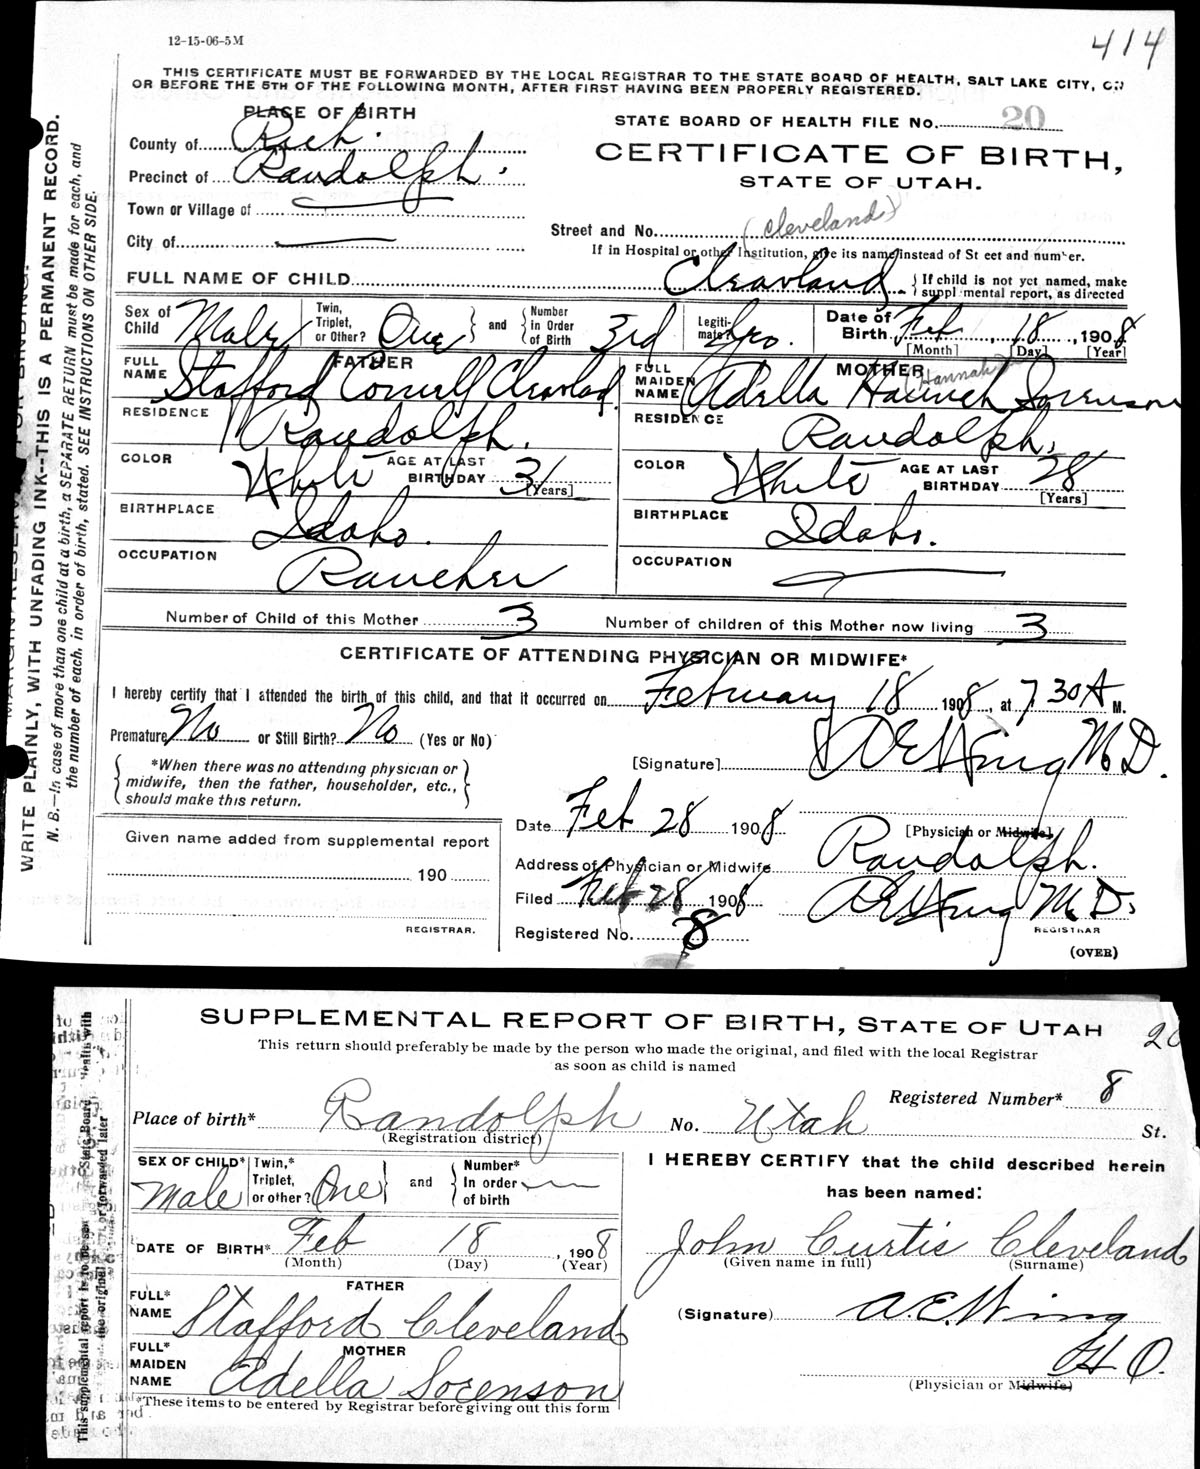 12-15-06-5M
414
THIS CERTIFICATE MUST BE FORWARDED BY THE LOCAL REGISTRAR TO THE STATE BOARD OF HEALTH, SALT LAKE CITY, ON
OR BEFORE THE 5TH OF THE FOLLOWING MONTH, AFTER FIRST HAVING BEEN PROPERLY REGISTERED.
PLACE OF BIRTH
County of Rich
Precinct of Randolph
Town or Village of
City of
STATE BOARD OF HEALTH FILE No. 20
CERTIFICATE OF BIRTH,
STATE OF UTAH.
(Cleveland)
Street and No.
If in Hospital or other Institution, give its name instead of St eet and number.
FULL NAME OF CHILD Cleavland { If child is not yet named, make
suppl mental report, as directed
Sex of Child Male Twin, Triplet, or Other? One } and { Number in Order of Birth 3rd Legiti- mate? Yes. Date of Birth Feb , 18 , 1908
[Month] [Day] [Year]
FATHER
FULL NAME Stafford Cornell Cleavlad
RESIDENCE Randolph.
COLOR White AGE AT LAST BIRTHDAY 31 [Years]
BIRTHPLACE Idaho.
OCCUPATION Rancher
MOTHER
(Hannah)
FULL MAIDEN NAME Adella Hannah Sorenson
RESIDENCE Randolph.
COLOR White AGE AT LAST BIRTHDAY 28 [Years]
BIRTHPLACE Idaho.
OCCUPATION
Number of Child of this Mother 3 Number of children of this Mother now living 3
CERTIFICATE OF ATTENDING PHYSICIAN OR MIDWIFE*
I hereby certify that I attended the birth of this child, and that it occurred on February 18 1908, at 7 30 A M.
Premature No or Still Birth? No (Yes or No)
{ *When there was no attending physician or
midwife, then the father, householder, etc.,
should make this return. }
[Signature] A E Wing M. D.
Date Feb 28 1908 [Physician or Midwife]
Address of Physician or Midwife Randolph.
Filed Feb 28 1908 A E Wing M. D.
REGISTRAR
Registered No. 8
(OVER)
Given name added from supplemental report
190
REGISTRAR.
WRITE PLAINLY, WITH UNFADING INK--THIS IS A PERMANENT RECORD.
N. B.—In case of more than one child at a birth, a SEPARATE RETURN must be made for each, and
the number of each, in order of birth, stated. SEE INSTRUCTIONS ON OTHER SIDE.
SUPPLEMENTAL REPORT OF BIRTH, STATE OF UTAH
20
This return should preferably be made by the person who made the original, and filed with the local Registrar
as soon as child is named
Registered Number* 8
Place of birth* Randolph No. Utah St.
(Registration district)
SEX OF CHILD* Male Twin,* Triplet, or other? One } and { Number* In order of birth
DATE OF BIRTH* Feb 18 , 1908
(Month) (Day) (Year)
FATHER
FULL* NAME Stafford Cleveland
MOTHER
FULL* MAIDEN NAME Adella Sorenson
*These items to be entered by Registrar before giving out this form
I HEREBY CERTIFY that the child described herein
has been named:
John Curtis Cleveland
(Given name in full) (Surname)
(Signature) A. E. Wing
H O.
(Physician or Midwife)